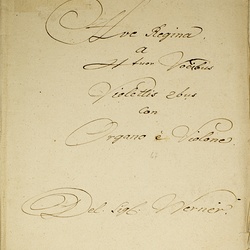 Ave Regina
a
4tuor Vocibus
Violettis 2bus
con
Organo è Violone.
Del Sigl. Werner.